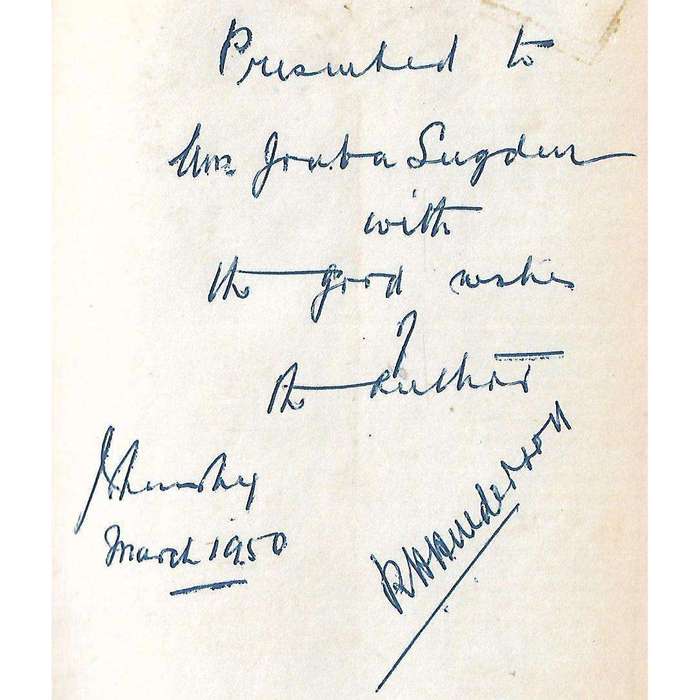 Presented to
Mrs Sugden
with
the good wishes
of
the author
March 1950
Henderson